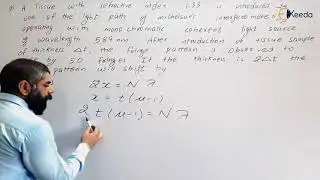 Keeda
A Tissue with refractive index 1.33 is introduced in
one of the light path of michelson's interferometer
operating with monochromatic coherent light source
of wavelength 589 nm. After introduction of tissue sample
of thickness Δt, the fringe pattern is observed to
by 50 fringes. If the thickness is 2Δt the
pattern will shift by
2x = Nλ
x = t(μ-1)
2t(μ-1) = Nλ